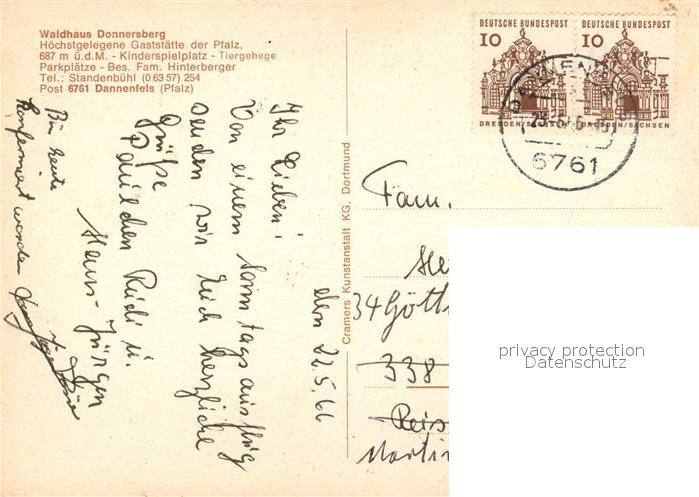 Waldhaus Donnersberg
Höchstgelegene Gaststätte der Pfalz,
687 m ü.d.M. - Kinderspielplatz - Tiergehege
Parkplätze - Bes. Fam. Hinterberger
Tel.: Standenbühl (0 63 57) 254
Post 6761 Dannenfels (Pfalz)
den 22.5.66
Ihr Lieben!
Von einem Sonntagsausflug
senden wir Euch herzliche
Grüße
Paulchen Rudi u.
Hans-Jürgen
Bin heute
konfirmiert worden
Cramers Kunstanstalt KG, Dortmund
DEUTSCHE BUNDESPOST
10
DRESDEN/SACHSEN
DEUTSCHE BUNDESPOST
10
DRESDEN/SACHSEN
6761
Fam.
34 Gött
338
Reis
Martin
privacy protection
Datenschutz